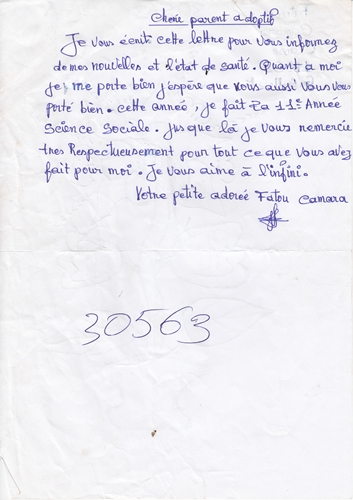 Cherie parent adoptif
Je vous écrit cette lettre pour vous informez
de mes nouvelles et l'état de santé. Quant a moi
je me porte bien j'espère que vous aussi vous vous
porté bien. cette année, je fait la 11e Année
Science Sociale. Jusque là je vous remercie
tres Respectueusement pour tout ce que vous avez
fait pour moi. Je vous aime à l'infini.
Votre petite adoreé Fatou Camara
30563